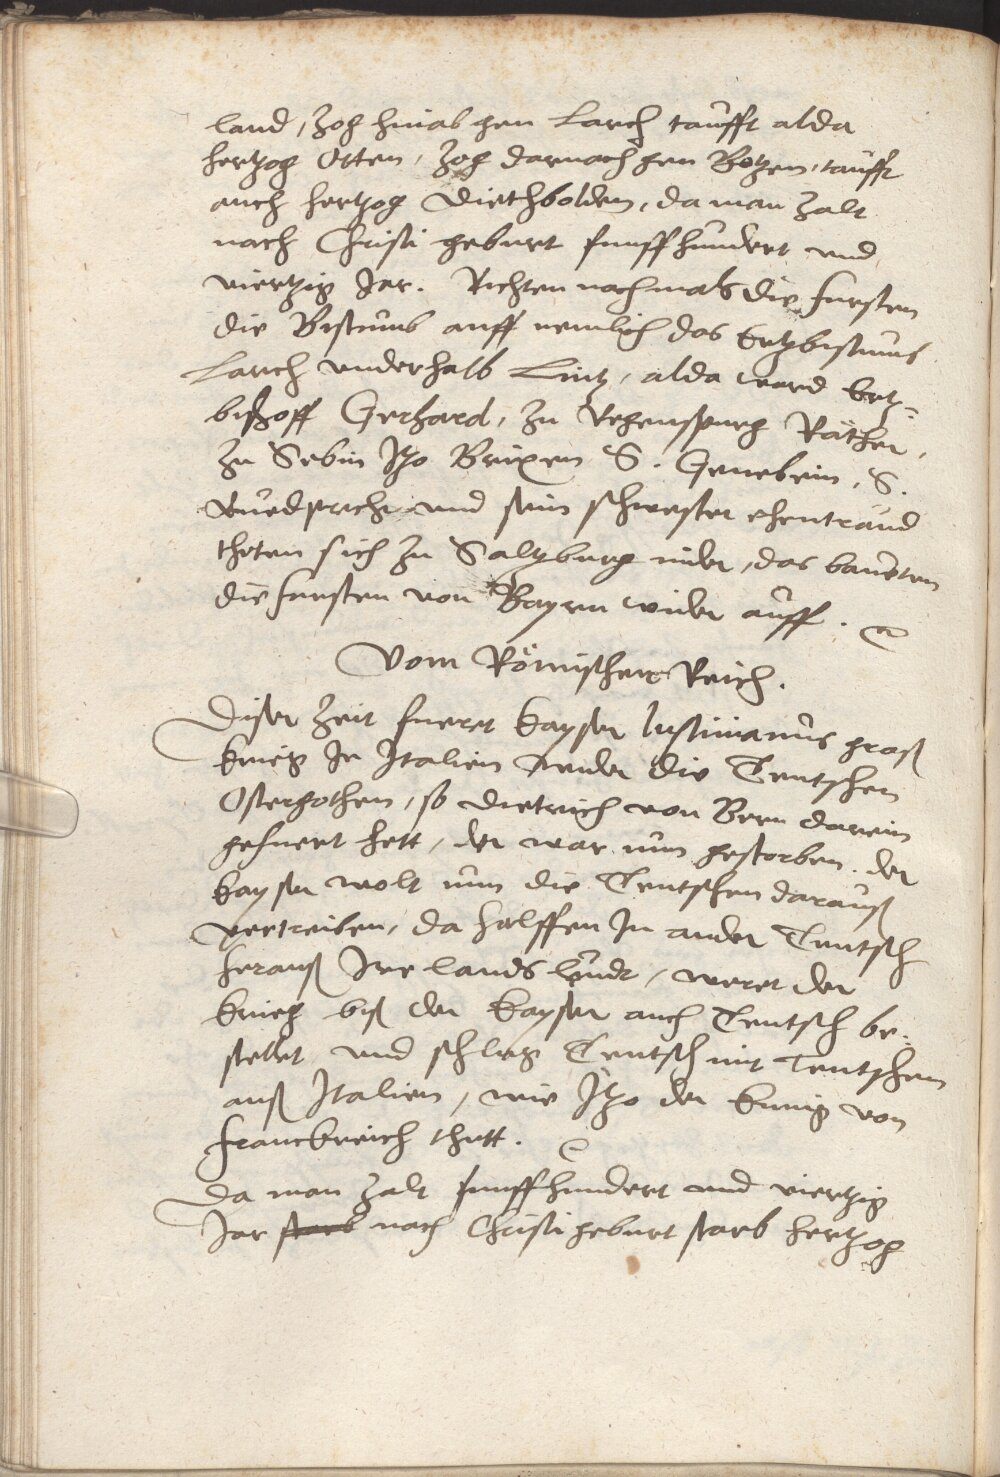 land, zog hinab gen Larch taufft alda
hertzog Otten, zog darnach gen Botzen, taufft
auch hertzog Diethbolden, da man zalt
nach Christi geburt funffhundert und
viertzig Jar. Richten nachmals die fursten
die Bistumb auff nemlich das Ertzbistumb
Larch underhalb Lintz, alda ward Ertz=
bischoff Gerhard, zu Regenspurg Räther,
zu Sebin Itzo Brixen S. Genebein, S.
Ruedprcht und sein schwester ehentraud
theten sich zu Saltzburg nider, das baueten
die fursten von Bayrn wider auff.
Vom Römischen Reich.
Diser zeit fueret kayser Iustinianus groß
krieg In Italien wider die Teutschen
Ostergothen, so Dietrich von Bern darein
gefuert hett, der war nun gestorben. der
kayser wolt nun die Teutschen darauß
vertreiben, da holffen In ander Teutsch
herauß Ire lands leudt, weret der
krieg biß der kayser auch Teutsch be=
stellet und schlug Teutsch mit Teutschen
auß Italien, wie Itzo der kunig von
franckreich thutt.
Da man zalt funffhundert und viertzig
Jar starb nach Christi geburt starb hertzog